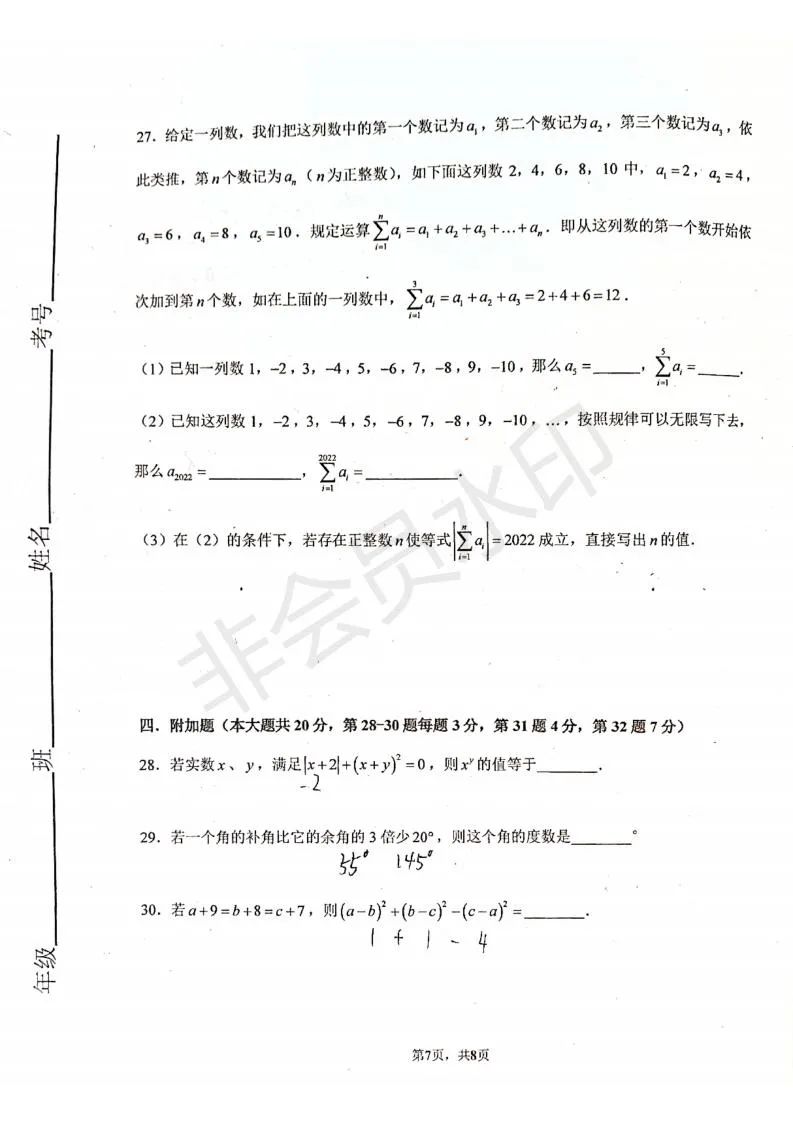 27. 给定一列数，我们把这列数中的第一个数记为a₁，第二个数记为a₂，第三个数记为a₃，依
此类推，第n个数记为aₙ（n为正整数），如下面这列数 2，4，6，8，10 中，a₁=2，a₂=4，
a₃=6，a₄=8，a₅=10．规定运算∑(i=1→n) aᵢ=a₁+a₂+a₃+…+aₙ．即从这列数的第一个数开始依
次加到第n个数，如在上面的一列数中，∑(i=1→3) aᵢ=a₁+a₂+a₃=2+4+6=12．
（1）已知一列数 1，−2，3，−4，5，−6，7，−8，9，−10，那么a₅=______，∑(i=1→5) aᵢ=______．
（2）已知这列数 1，−2，3，−4，5，−6，7，−8，9，−10，…，按照规律可以无限写下去，
那么a₂₀₂₂=____________，∑(i=1→2022) aᵢ=____________．
（3）在（2）的条件下，若存在正整数n使等式|∑(i=1→n) aᵢ|=2022 成立，直接写出n的值．
四．附加题（本大题共20分，第28-30题每题3分，第31题4分，第32题7分）
28．若实数x、y，满足|x+2|+(x+y)²=0，则xʸ的值等于________．
-2
29．若一个角的补角比它的余角的 3 倍少20°，则这个角的度数是________°
35° 145°
30．若a+9=b+8=c+7，则(a−b)²+(b−c)²−(c−a)²=________．
1 + 1 - 4
第7页，共8页
年级 班 姓名 考号
非会员水印